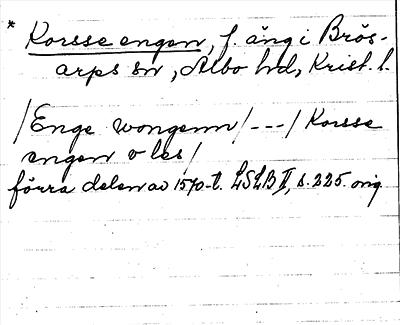 * Korsse engen, f. äng i Brös-
arps sn, Albo hd, Krist. l.
/Enge wongenn/---/Korsse
engen o les/
förra delen av 1570-t. LSLB II, s. 225. orig.